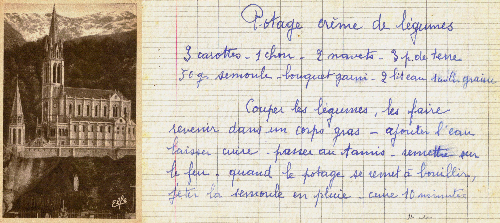 Potage crème de légumes
3 carottes - 1 chou - 2 navets - 3 p. de terre
50 g semoule - bouquet garni - 2 lit eau
Couper les légumes, les faire
revenir dans un corps gras - ajouter l'eau
laisser cuire - passer au tamis - remettre sur
le feu - quand le potage se remet à bouillir,
jeter la semoule en pluie - cuire 10 minutes